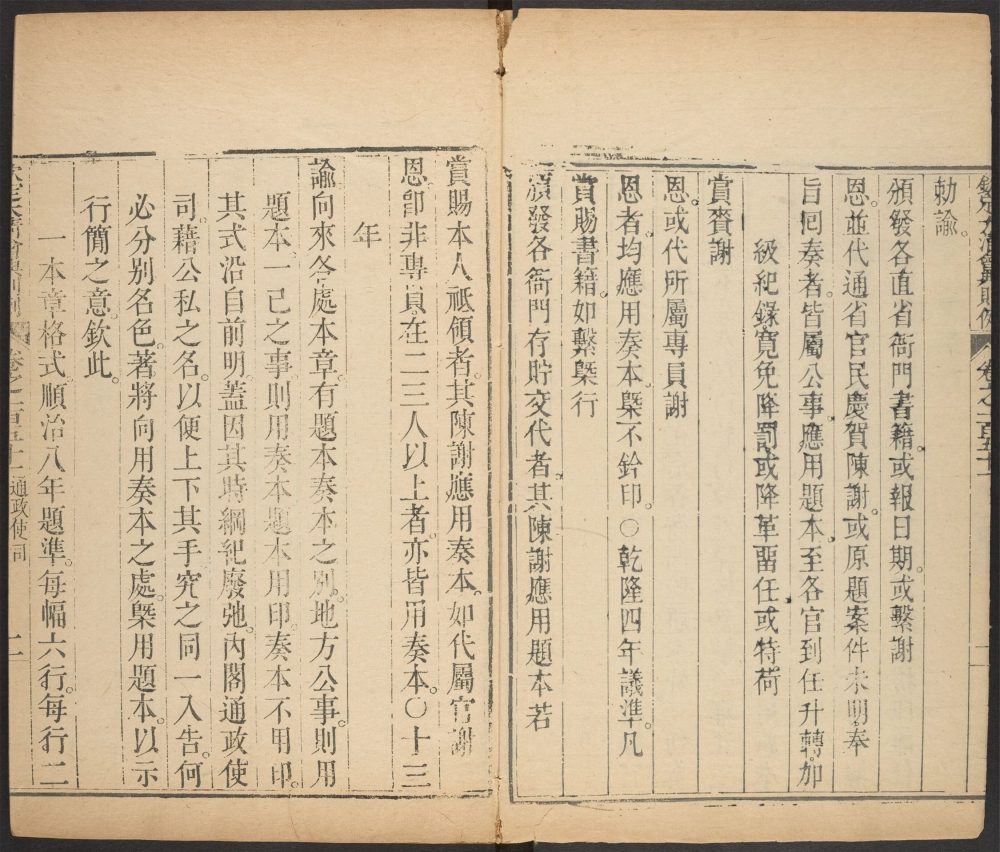 欽定大清會典則例 卷之一百五十一
勅諭。
頒發各直省衙門書籍。或報日期。或繫謝
恩。並代通省官民慶賀陳謝。或原題案件未明。奉
旨囘奏者。皆屬公事。應用題本。至各官到任升轉。加
級紀錄寬免降罰或降革畱任或特荷
賞賚謝
恩。或代所屬專員謝
恩者。均應用奏本。槩不鈐印。〇乾隆四年議準。凡
賞賜書籍。如繫槩行
頒發各衙門存貯交代者。其陳謝應用題本。若
賞賜本人祗領者。其陳謝應用奏本。如代屬官謝
恩。卽非專員。在二三人以上者。亦皆用奏本。〇十三
年
諭向來各處本章。有題本奏本之別。地方公事。則用
題本。一己之事。則用奏本。題本用印。奏本不用印。
其式沿自前明。蓋因其時綱紀廢弛。內閣通政使
司。藉公私之名。以便上下其手。究之同一入告。何
必分別名色。著將向用奏本之處。槩用題本。以示
行簡之意。欽此。
一本章格式。順治八年題準。每幅六行。每行二
欽定大清會典則例 卷之一百五十一 通政使司 二